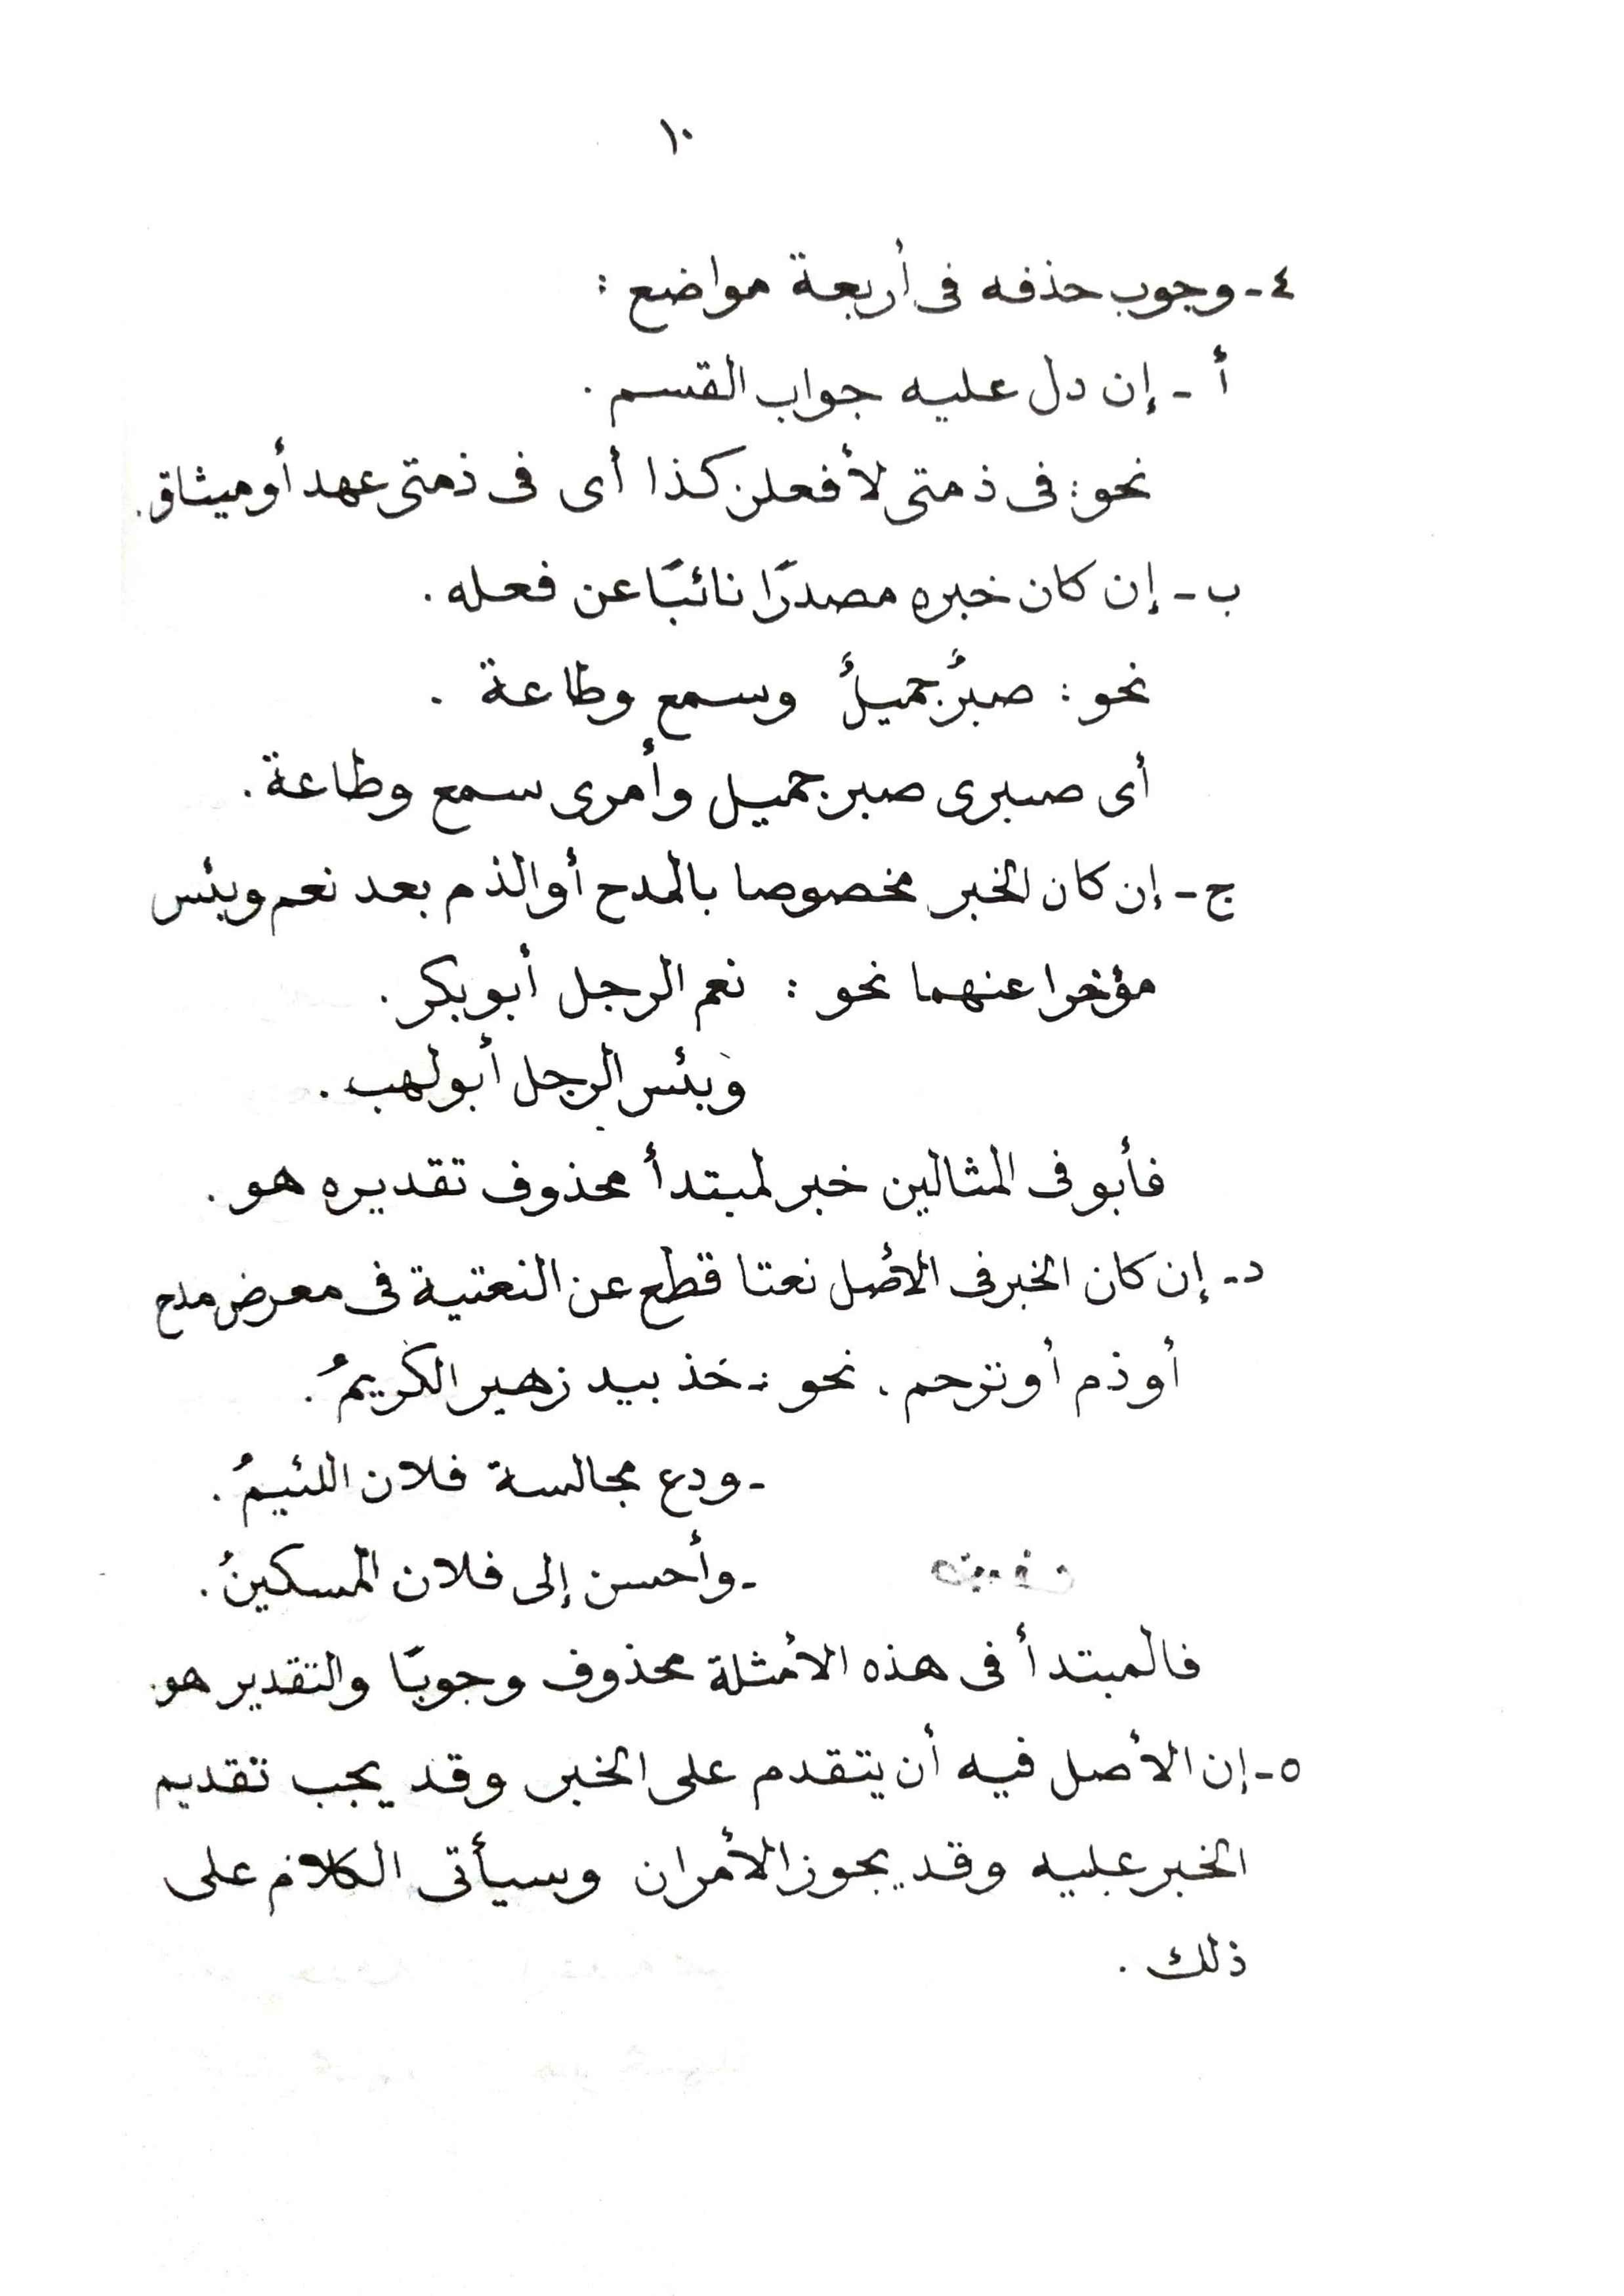 ١٠
٤ - وجوب حذفه فى أربعة مواضع :
أ - إن دل عليه جواب القسم .
نحو : فى ذمتى لأفعلن كذا أى فى ذمتى عهد أو ميثاق .
ب - إن كان خبره مصدرًا نائبًا عن فعله .
نحو : صبرٌ جميلٌ وسمع وطاعة .
أى صبرى صبر جميل وأمرى سمع وطاعة .
ج - إن كان الخبر مخصوصا بالمدح أو الذم بعد نعم وبئس
مؤخرا عنهما نحو : نعم الرجل أبو بكر .
وبئس الرجل أبو لهب .
فأبو فى المثالين خبر لمبتدأ محذوف تقديره هو .
د - إن كان الخبر فى الأصل نعتا قطع عن النعتية فى معرض مدح
أو ذم أو ترحم . نحو : - خذ بيد زهير الكريمُ .
- ودع مجالسة فلان اللئيمُ .
- وأحسن إلى فلان المسكينُ .
فالمبتدأ فى هذه الأمثلة محذوف وجوبًا والتقدير هو .
٥ - إن الأصل فيه أن يتقدم على الخبر وقد يجب تقديم
الخبر عليه وقد يجوز الأمران وسيأتى الكلام على
ذلك .